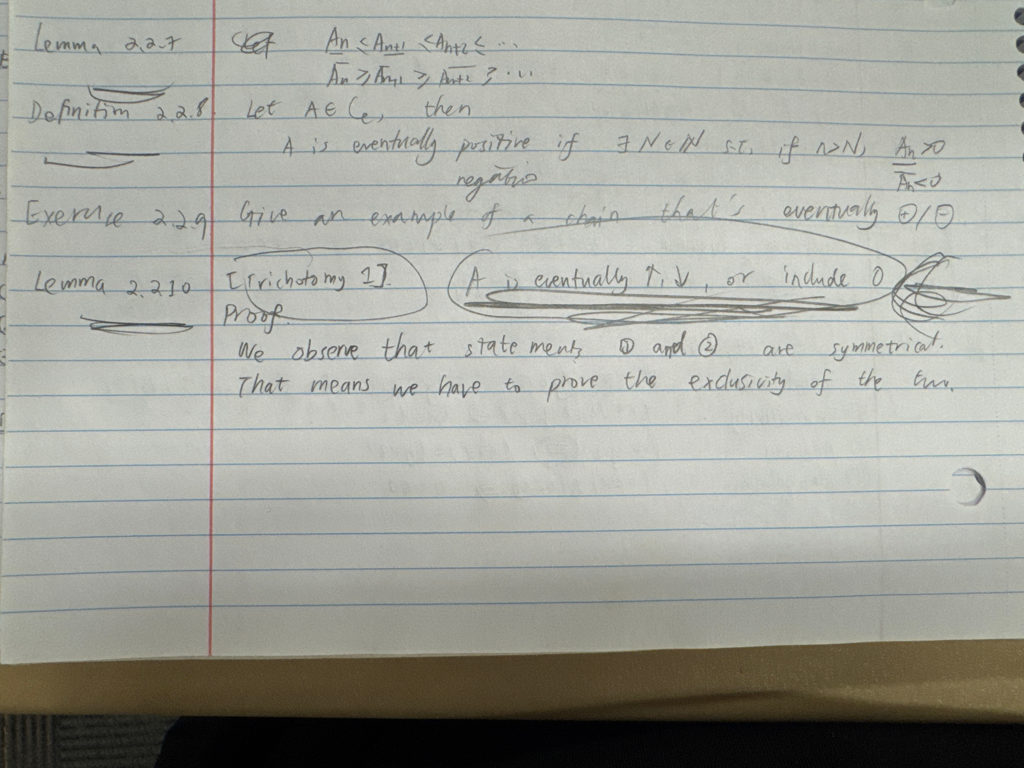 Lemma 2.2.7 A̲n ≤ A̲n+1 ≤ A̲n+2 ≤ ...
A̅n ≥ A̅n+1 ≥ A̅n+2 ≥ ...
Definition 2.2.8 Let A ∈ Ce, then
A is eventually positive if ∃ N ∈ ℕ s.t. if n>N, A̲n >0
negative A̅n <0
Exercise 2.2.9 Give an example of a chain that's eventually ⊕/⊖
Lemma 2.2.10 [Trichotomy 1]. A is eventually ↑, ↓, or include 0
Proof.
We observe that statements ① and ② are symmetrical.
That means we have to prove the exclusivity of the two.